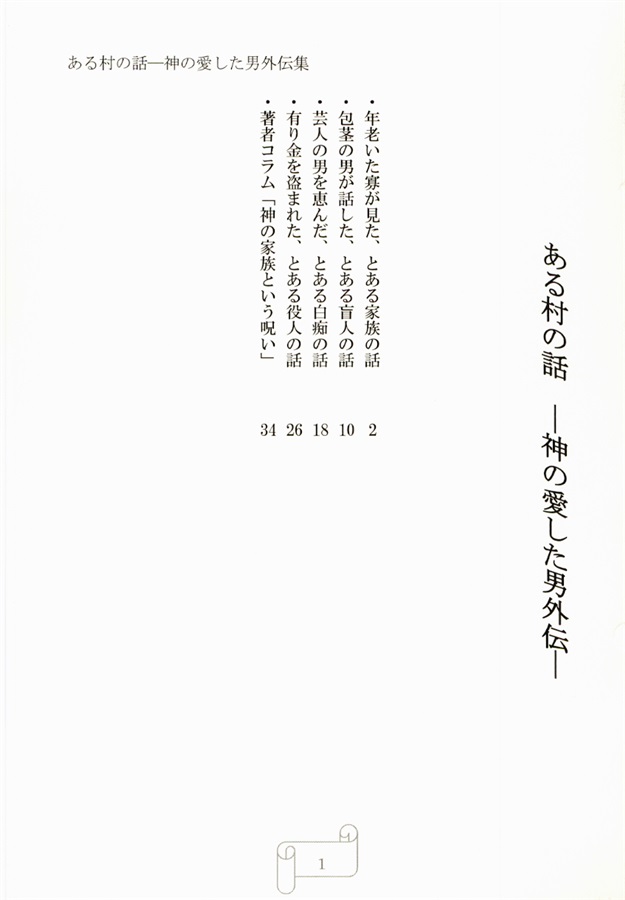 ある村の話―神の愛した男外伝集
ある村の話 ―神の愛した男外伝―
・年老いた寡が見た、とある家族の話 2
・包茎の男が話した、とある盲人の話 10
・芸人の男を恵んだ、とある白痴の話 18
・有り金を盗まれた、とある役人の話 26
・著者コラム「神の家族という呪い」 34
1